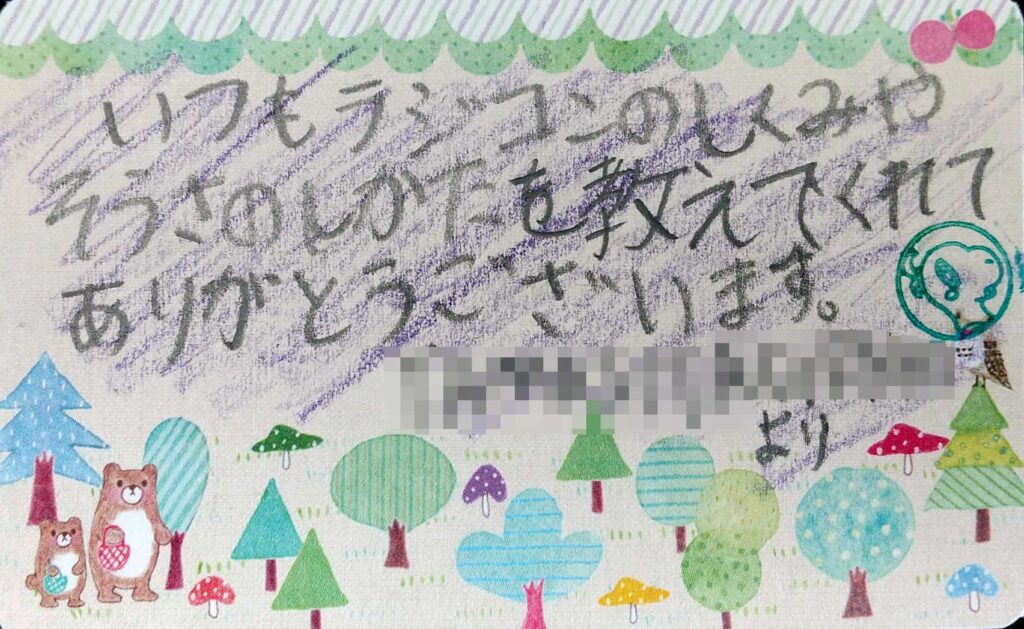 いつもラジコンのしくみや
そうさのしかたを教えてくれて
ありがとうございます。
より